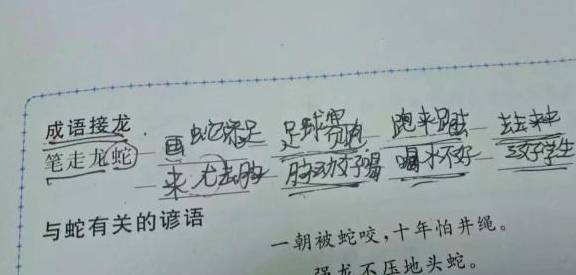 成语接龙
画蛇添足 足球赛 跑来跑去 去去来来
笔走龙蛇
来 去 好喝 喝水不好 三好学生
与蛇有关的谚语
一朝被蛇咬,十年怕井绳。
强龙不压地头蛇。